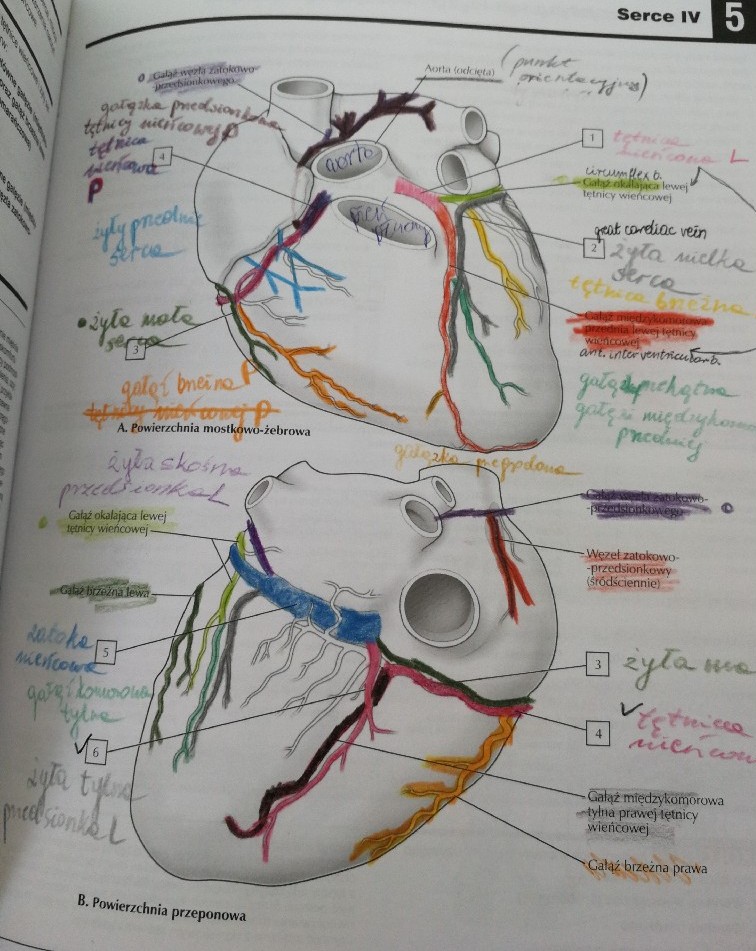 Serce IV 5
Gałąź węzła zatokowo-
przedsionkowego
Aorta (odcięta)
(punkt
orientacyjny)
gałązka przedsionkowa
tętnicy wieńcowej P
tętnica
wieńcowa
P
4
aorta
pień
płucny
1
tętnica
wieńcowa L
circumflex b.
Gałąź okalająca lewej
tętnicy wieńcowej
great cardiac vein
2
żyła wielka
serca
żyły przednie
serca
tętnica brzeżna
Gałąź międzykomorowa
przednia lewej tętnicy
wieńcowej
ant. interventricular b.
żyła mała
serca
3
gałąź brzeżna P
tętnicy wieńcowej P
gałąź przekątna
gałęzi międzykomo
przedniej
A. Powierzchnia mostkowo-żebrowa
gałązka przegrodowa
żyła skośna
przedsionka L
Gałąź okalająca lewej
tętnicy wieńcowej
Gałąź węzła zatokowo-
-przedsionkowego
Węzeł zatokowo-
-przedsionkowy
(śródściennie)
Gałąź brzeżna lewa
zatoka
wieńcowa
5
gałąź komorowa
tylna
6
żyła tylna
przedsionka L
3
żyła ma
4
tętnica
wieńcow
Gałąź międzykomorowa
tylna prawej tętnicy
wieńcowej
Gałąź brzeżna prawa
B. Powierzchnia przeponowa